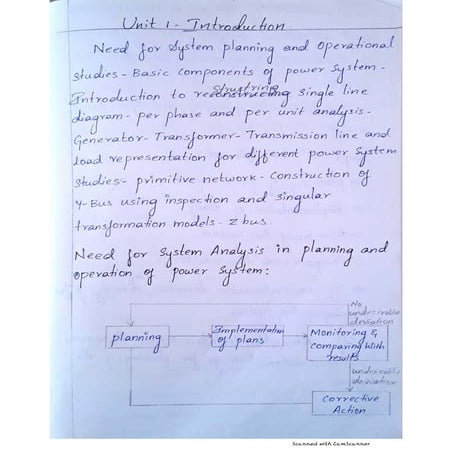 Unit 1 - Introduction
Need for System planning and Operational
studies - Basic Components of power System -
structring
Introduction to reconstructing Single line
diagram - per phase and per unit analysis -
Generator - Transformer - Transmission line and
load representation for different power System
Studies - primitive network - Construction of
Y-Bus using inspection and Singular
transformation models - Z bus.
Need for System Analysis in planning and
operation of power System :
No
undesirable
deviation
planning
Implementation
of plans
Monitoring &
Comparing With
results
undesirable
deviation
Corrective
Action
Scanned with CamScanner